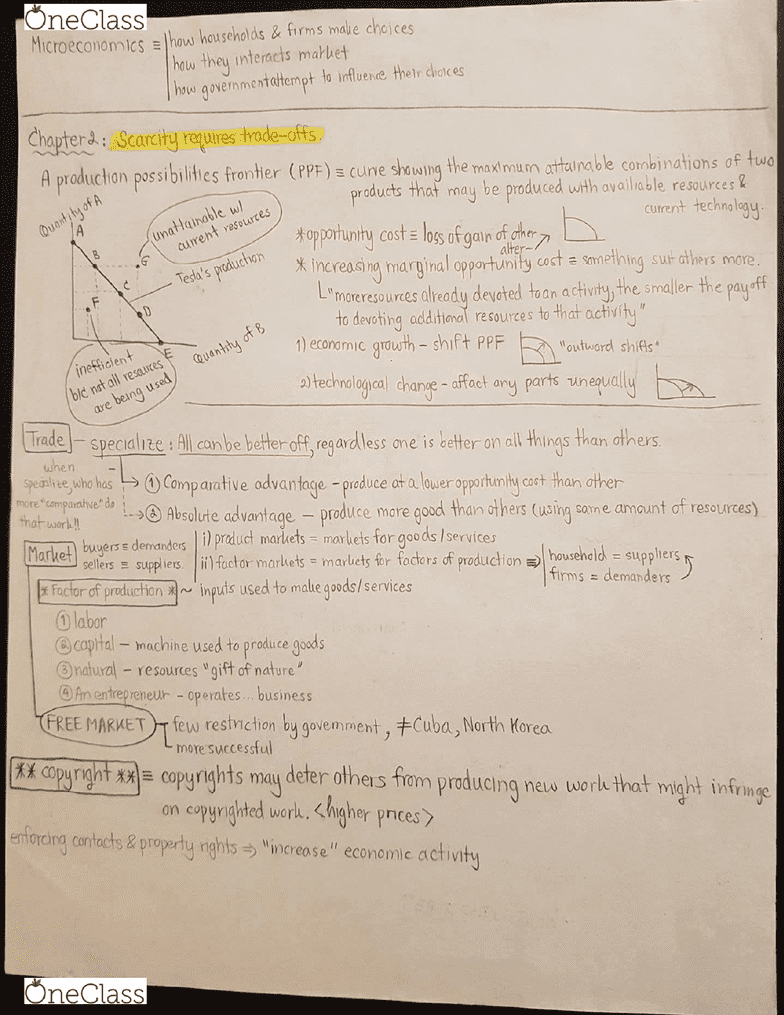 OneClass
Microeconomics ≡ how households & firms make choices
how they interacts market
how governmentattempt to influence their choices
Chapter 2: Scarcity requires trade-offs.
A production possibilities frontier (PPF) ≡ curve showing the maximum attainable combinations of two
products that may be produced with availiable resources &
current technology.
Quantity of A
A
B
C
D
E
F
G
unattainable w/
current resources
Tesla's production
Quantity of B
inefficient
b/c not all resources
are being used
*opportunity cost ≡ loss of gain of other
alter-
* increasing marginal opportunity cost ≡ something sur others more.
"moreresources already devoted to an activity, the smaller the payoff
to devoting additional resources to that activity"
1) economic growth - shift PPF "outward shifts"
2) technological change - affact any parts unequally
Trade - specialize: All can be better off, regardless one is better on all things than others.
when
specialize, who has
more "comparative" do
that work!!
① Comparative advantage - produce at a lower opportunity cost than other
② Absolute advantage - produce more good than others (using same amount of resources)
Market buyers ≡ demanders
sellers ≡ suppliers
i) product markets = markets for goods/services
ii) factor markets = markets for factors of production ⇒ household = suppliers
firms = demanders
* Factor of production * ~ inputs used to make goods/services
① labor
② capital - machine used to produce goods
③ natural - resources "gift of nature"
④ An entrepreneur - operates... business
FREE MARKET - few restriction by government, ≠ Cuba, North Korea
more successful
** copyright ** ≡ copyrights may deter others from producing new work that might infringe
on copyrighted work. <higher prices>
enforcing contacts & property rights ⇒ "increase" economic activity
OneClass